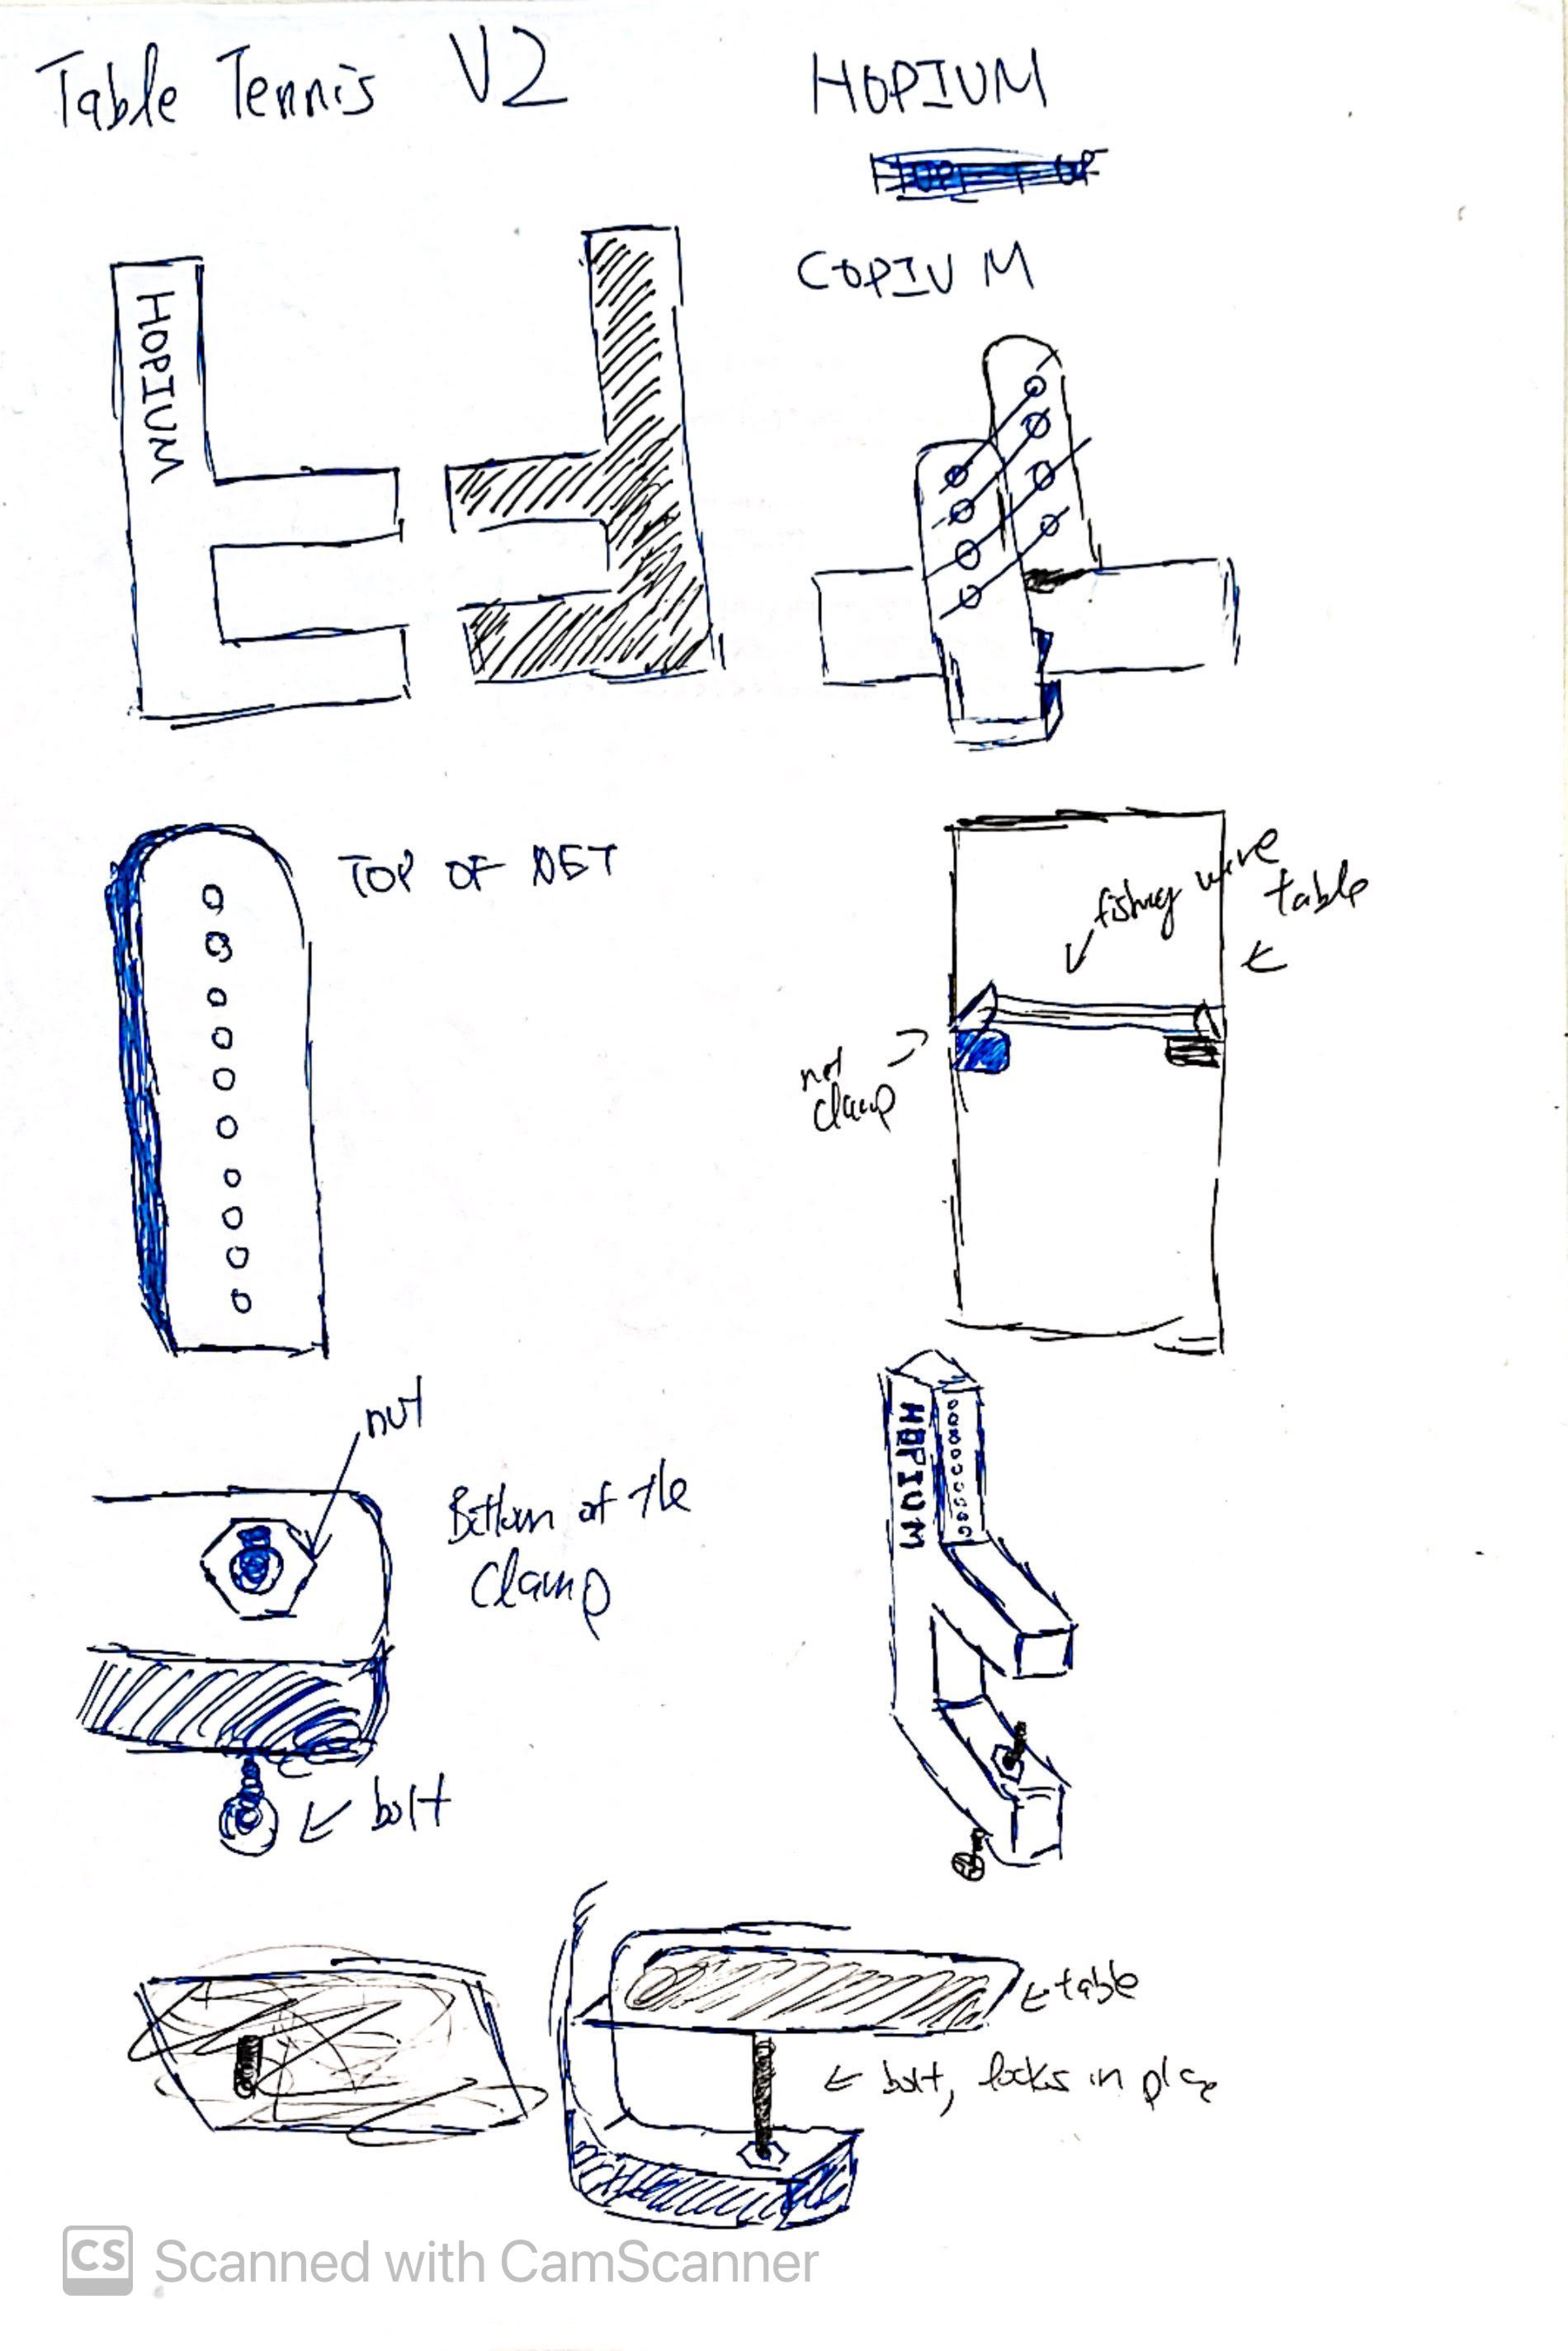 Table Tennis V2
HOPIUM
COPIUM
HOPIUM
TOP OF NET
fishing wire
table
net
clamp
nut
Bottom of the
Clamp
HOPIUM
bolt
table
bolt, locks in place
CS Scanned with CamScanner